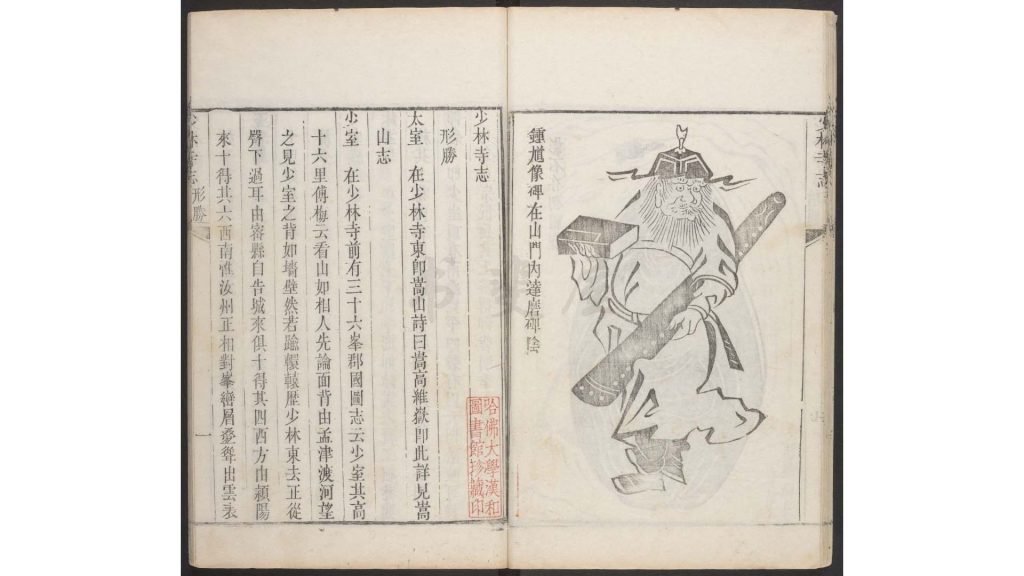 少林寺志
鍾馗像碑在山門內達磨碑陰
少林寺志
形勝
太室 在少林寺東卽嵩山詩曰嵩高維嶽卽此詳見嵩
山志
少室 在少林寺前有三十六峯郡國圖志云少室其高
十六里傅梅云看山如相人先論面背由孟津渡河望
之見少室之背如墻壁然若踰轘轅歷少林東去正從
聲下過耳由密縣白告城來俱十得其四西方由潁陽
來十得其六西南惟汝州正相對峯巒層疊聳出雲表
少林寺志 形勝 一
哈佛大學漢和
圖書館珍藏印